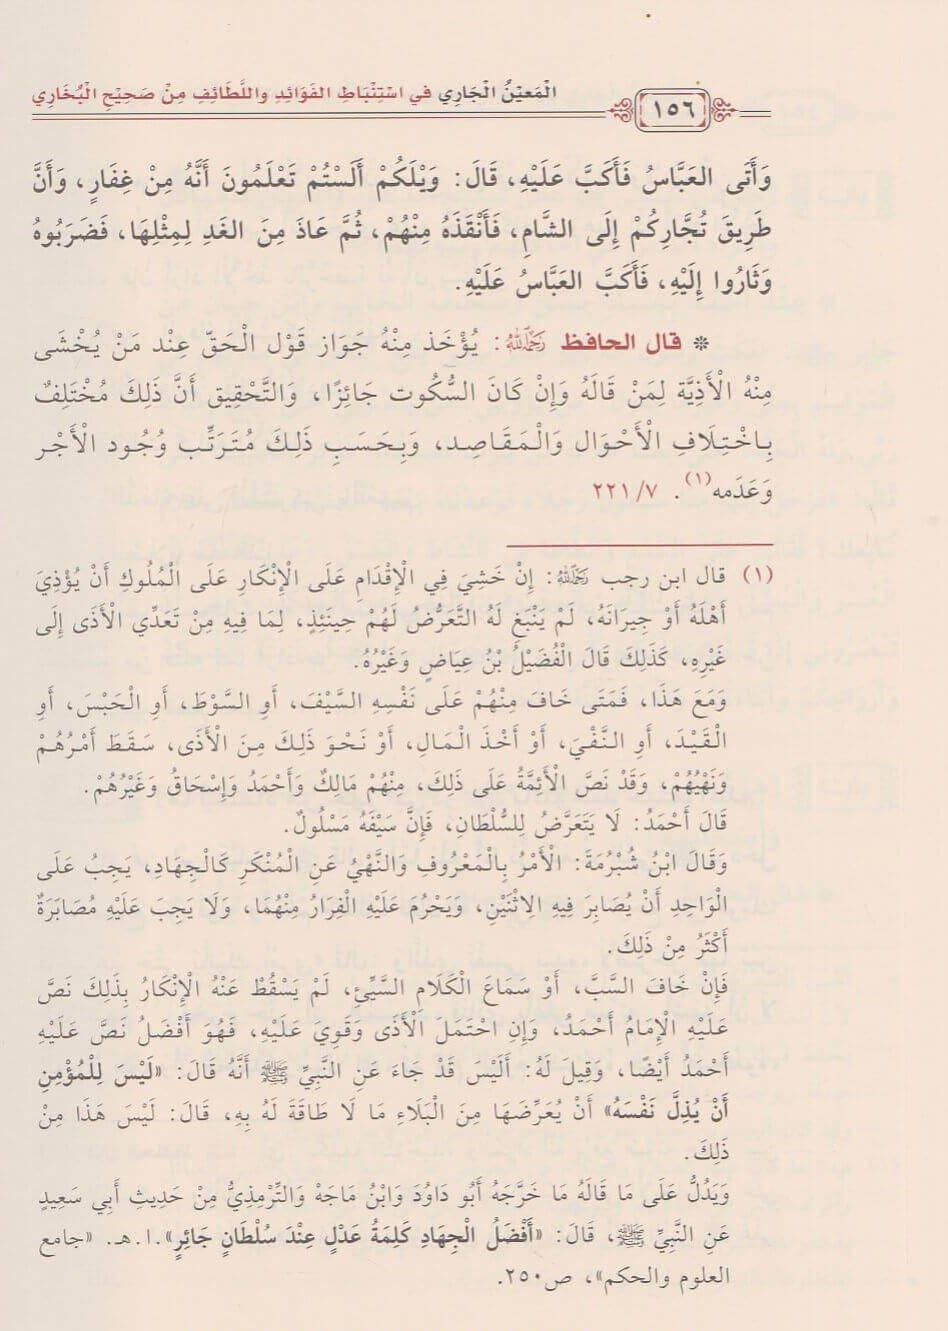 الْمَعِيْنُ الْجَارِي في اسْتِنْبَاطِ الفَوَائِدِ واللَّطَائِفِ مِنْ صَحِيْحِ الْبُخَارِي
١٥٦
وَأَتَى العَبَّاسُ فَأَكَبَّ عَلَيْهِ، قَالَ: وَيْلَكُمْ أَلَسْتُمْ تَعْلَمُونَ أَنَّهُ مِنْ غِفَارٍ، وَأَنَّ
طَرِيقَ تُجَّارِكُمْ إِلَى الشَّامِ، فَأَنْقَذَهُ مِنْهُمْ، ثُمَّ عَادَ مِنَ الغَدِ لِمِثْلِهَا، فَضَرَبُوهُ
وَثَارُوا إِلَيْهِ، فَأَكَبَّ العَبَّاسُ عَلَيْهِ.
* قال الحافظ رَحِمَهُ اللَّهُ: يُؤْخَذ مِنْهُ جَوَاز قَوْل الْحَقّ عِنْد مَنْ يُخْشَى
مِنْهُ الْأَذِيَّة لِمَنْ قَالَهُ وَإِنْ كَانَ السُّكُوت جَائِزًا، وَالتَّحْقِيق أَنَّ ذَلِكَ مُخْتَلِفٌ
بِاخْتِلَافِ الْأَحْوَال وَالْمَقَاصِد، وَبِحَسَبِ ذَلِكَ مُتَرَتِّب وُجُود الْأَجْر
وَعَدَمه(١). ٢٢١/٧
(١) قال ابن رجب رَحِمَهُ اللَّهُ: إِنْ خَشِيَ فِي الْإِقْدَامِ عَلَى الْإِنْكَارِ عَلَى الْمُلُوكِ أَنْ يُؤْذِيَ
أَهْلَهُ أَوْ جِيرَانَهُ، لَمْ يَنْبَغِ لَهُ التَّعَرُّضُ لَهُمْ حِينَئِذٍ، لِمَا فِيهِ مِنْ تَعَدِّي الْأَذَى إِلَى
غَيْرِهِ، كَذَلِكَ قَالَ الْفُضَيْلُ بْنُ عِيَاضٍ وَغَيْرُهُ.
وَمَعَ هَذَا، فَمَتَى خَافَ مِنْهُمْ عَلَى نَفْسِهِ السَّيْفَ، أَوِ السَّوْطَ، أَوِ الْحَبْسَ، أَوِ
الْقَيْدَ، أَوِ النَّفْيَ، أَوْ أَخْذَ الْمَالِ، أَوْ نَحْوَ ذَلِكَ مِنَ الْأَذَى، سَقَطَ أَمْرُهُمْ
وَنَهْيُهُمْ، وَقَدْ نَصَّ الْأَئِمَّةُ عَلَى ذَلِكَ، مِنْهُمْ مَالِكٌ وَأَحْمَدُ وَإِسْحَاقُ وَغَيْرُهُمْ.
قَالَ أَحْمَدُ: لَا يَتَعَرَّضُ لِلسُّلْطَانِ، فَإِنَّ سَيْفَهُ مَسْلُولٌ.
وَقَالَ ابْنُ شُبْرُمَةَ: الْأَمْرُ بِالْمَعْرُوفِ وَالنَّهْيُ عَنِ الْمُنْكَرِ كَالْجِهَادِ، يَجِبُ عَلَى
الْوَاحِدِ أَنْ يُصَابِرَ فِيهِ الِاثْنَيْنِ، وَيَحْرُمَ عَلَيْهِ الْفِرَارُ مِنْهُمَا، وَلَا يَجِبَ عَلَيْهِ مُصَابَرَةٌ
أَكْثَرُ مِنْ ذَلِكَ.
فَإِنْ خَافَ السَّبَّ، أَوْ سَمَاعَ الْكَلَامِ السَّيِّئِ، لَمْ يَسْقُطْ عَنْهُ الْإِنْكَارُ بِذَلِكَ نَصَّ
عَلَيْهِ الْإِمَامُ أَحْمَدُ، وَإِنِ احْتَمَلَ الْأَذَى وَقَوِيَ عَلَيْهِ، فَهُوَ أَفْضَلُ نَصَّ عَلَيْهِ
أَحْمَدُ أَيْضًا، وَقِيلَ لَهُ: أَلَيْسَ قَدْ جَاءَ عَنِ النَّبِيِّ ﷺ أَنَّهُ قَالَ: «لَيْسَ لِلْمُؤْمِنِ
أَنْ يُذِلَّ نَفْسَهُ» أَنْ يُعَرِّضَهَا مِنَ الْبَلَاءِ مَا لَا طَاقَةَ لَهُ بِهِ، قَالَ: لَيْسَ هَذَا مِنْ
ذَلِكَ.
وَيَدُلُّ عَلَى مَا قَالَهُ مَا خَرَّجَهُ أَبُو دَاوُدَ وَابْنُ مَاجَهْ وَالتِّرْمِذِيُّ مِنْ حَدِيثِ أَبِي سَعِيدٍ
عَنِ النَّبِيِّ ﷺ، قَالَ: «أَفْضَلُ الْجِهَادِ كَلِمَةُ عَدْلٍ عِنْدَ سُلْطَانٍ جَائِرٍ».ا.هـ. «جامع
العلوم والحكم»، ص٢٥٠.